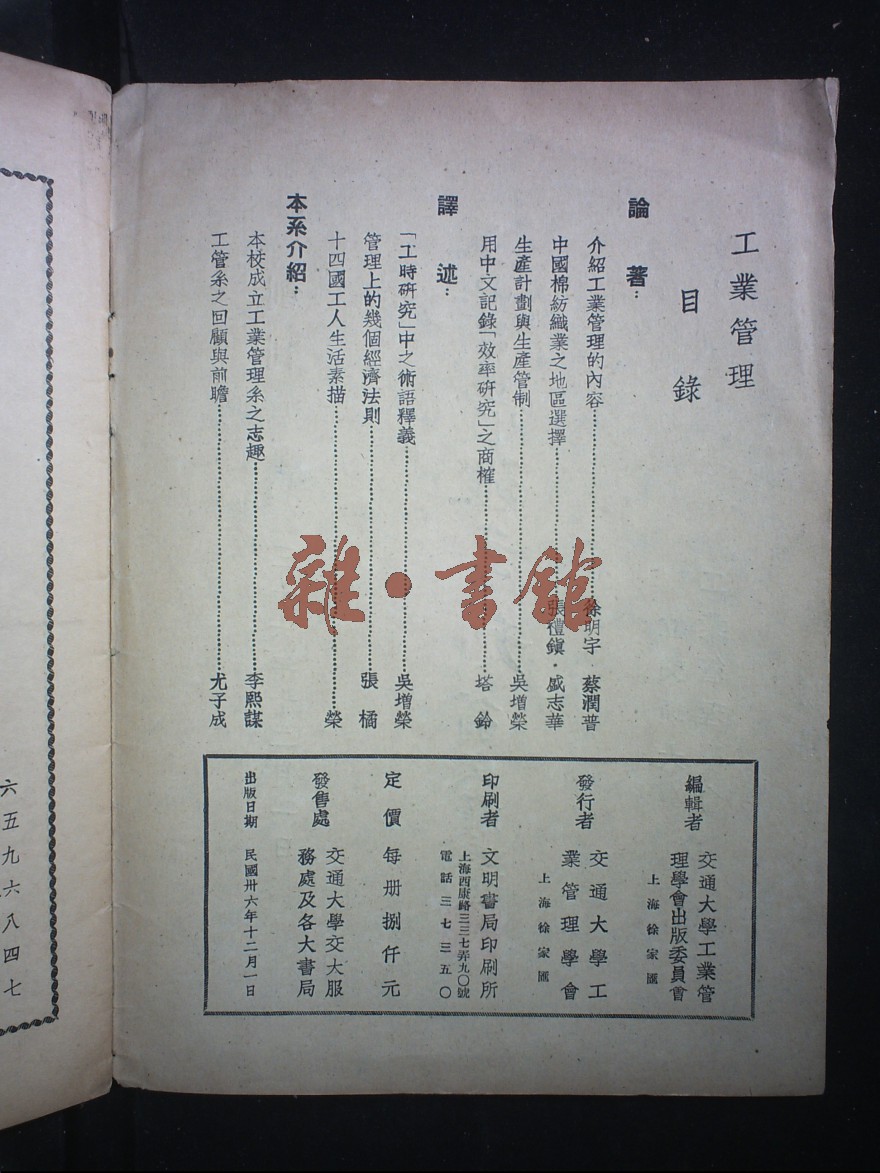 工業管理
目錄
論著：
介紹工業管理的內容……徐明宇 蔡潤普
中國棉紡織業之地區選擇……張禮鎭·盛志華
生產計劃與生產管制……吳增榮
用中文記錄「效率研究」之商榷……塔鈴
譯述：
「工時研究」中之術語釋義……吳增榮
管理上的幾個經濟法則……張橘
十四國工人生活素描……榮
本系介紹：
本校成立工業管理系之志趣……李熙謀
工管系之回顧與前瞻……尤子成
編輯者
交通大學工業管
理學會出版委員會
上海徐家匯
發行者
交通大學工
業管理學會
上海徐家匯
印刷者
文明書局印刷所
上海西康路三三七弄九〇號
電話三七三五〇
定價 每册捌仟元
發售處
交通大學交大服
務處及各大書局
出版日期 民國卅六年十二月一日
六五九六八四七
雜·書館